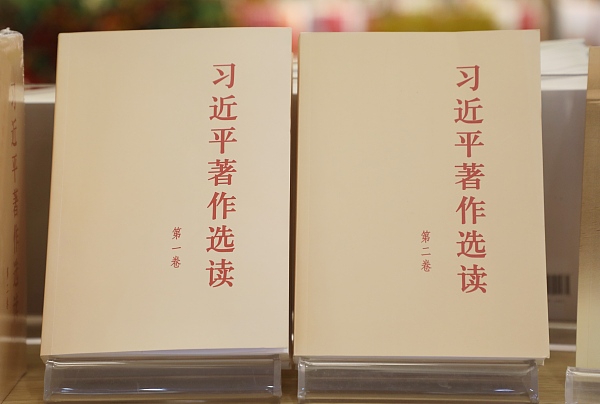 习近平著作选读
第一卷
习近平著作选读
第二卷